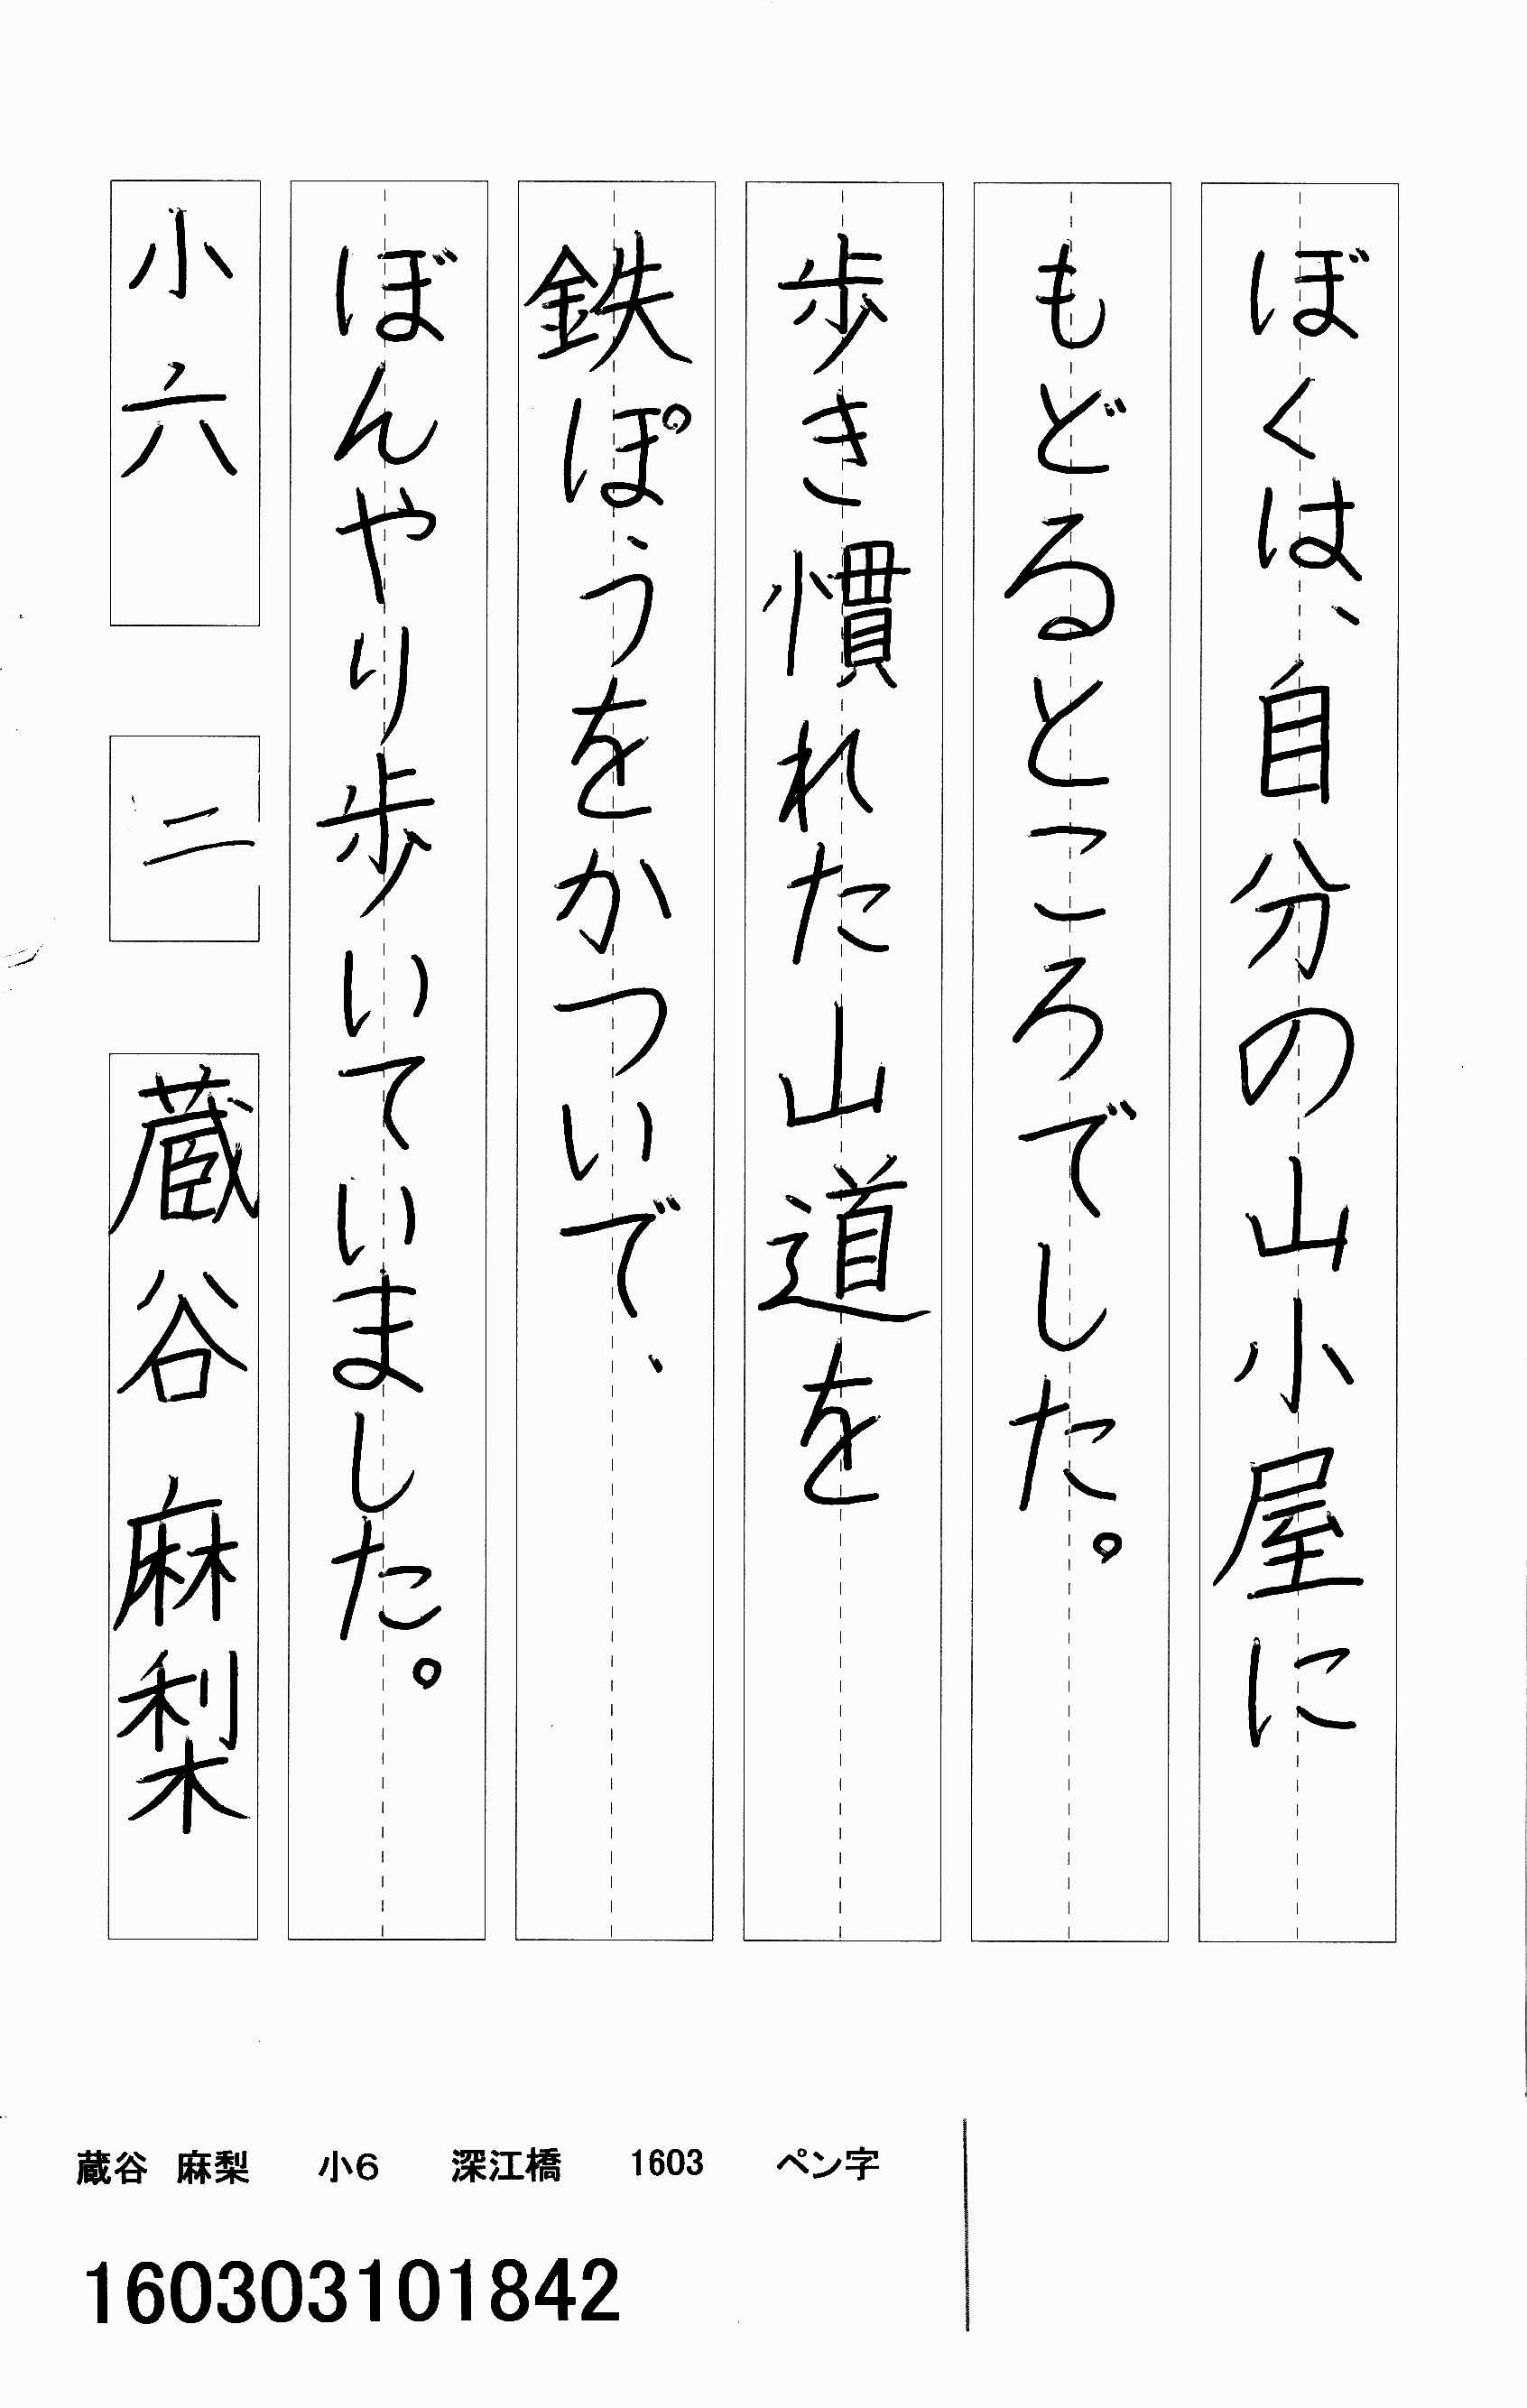 ぼくは、自分の山小屋に
もどるところでした。
歩き慣れた山道を
鉄ぽうをかついで、
ぼんやり歩いていました。
小六 二 蔵谷麻梨
蔵谷 麻梨 小6 深江橋 1603 ペン字
160303101842